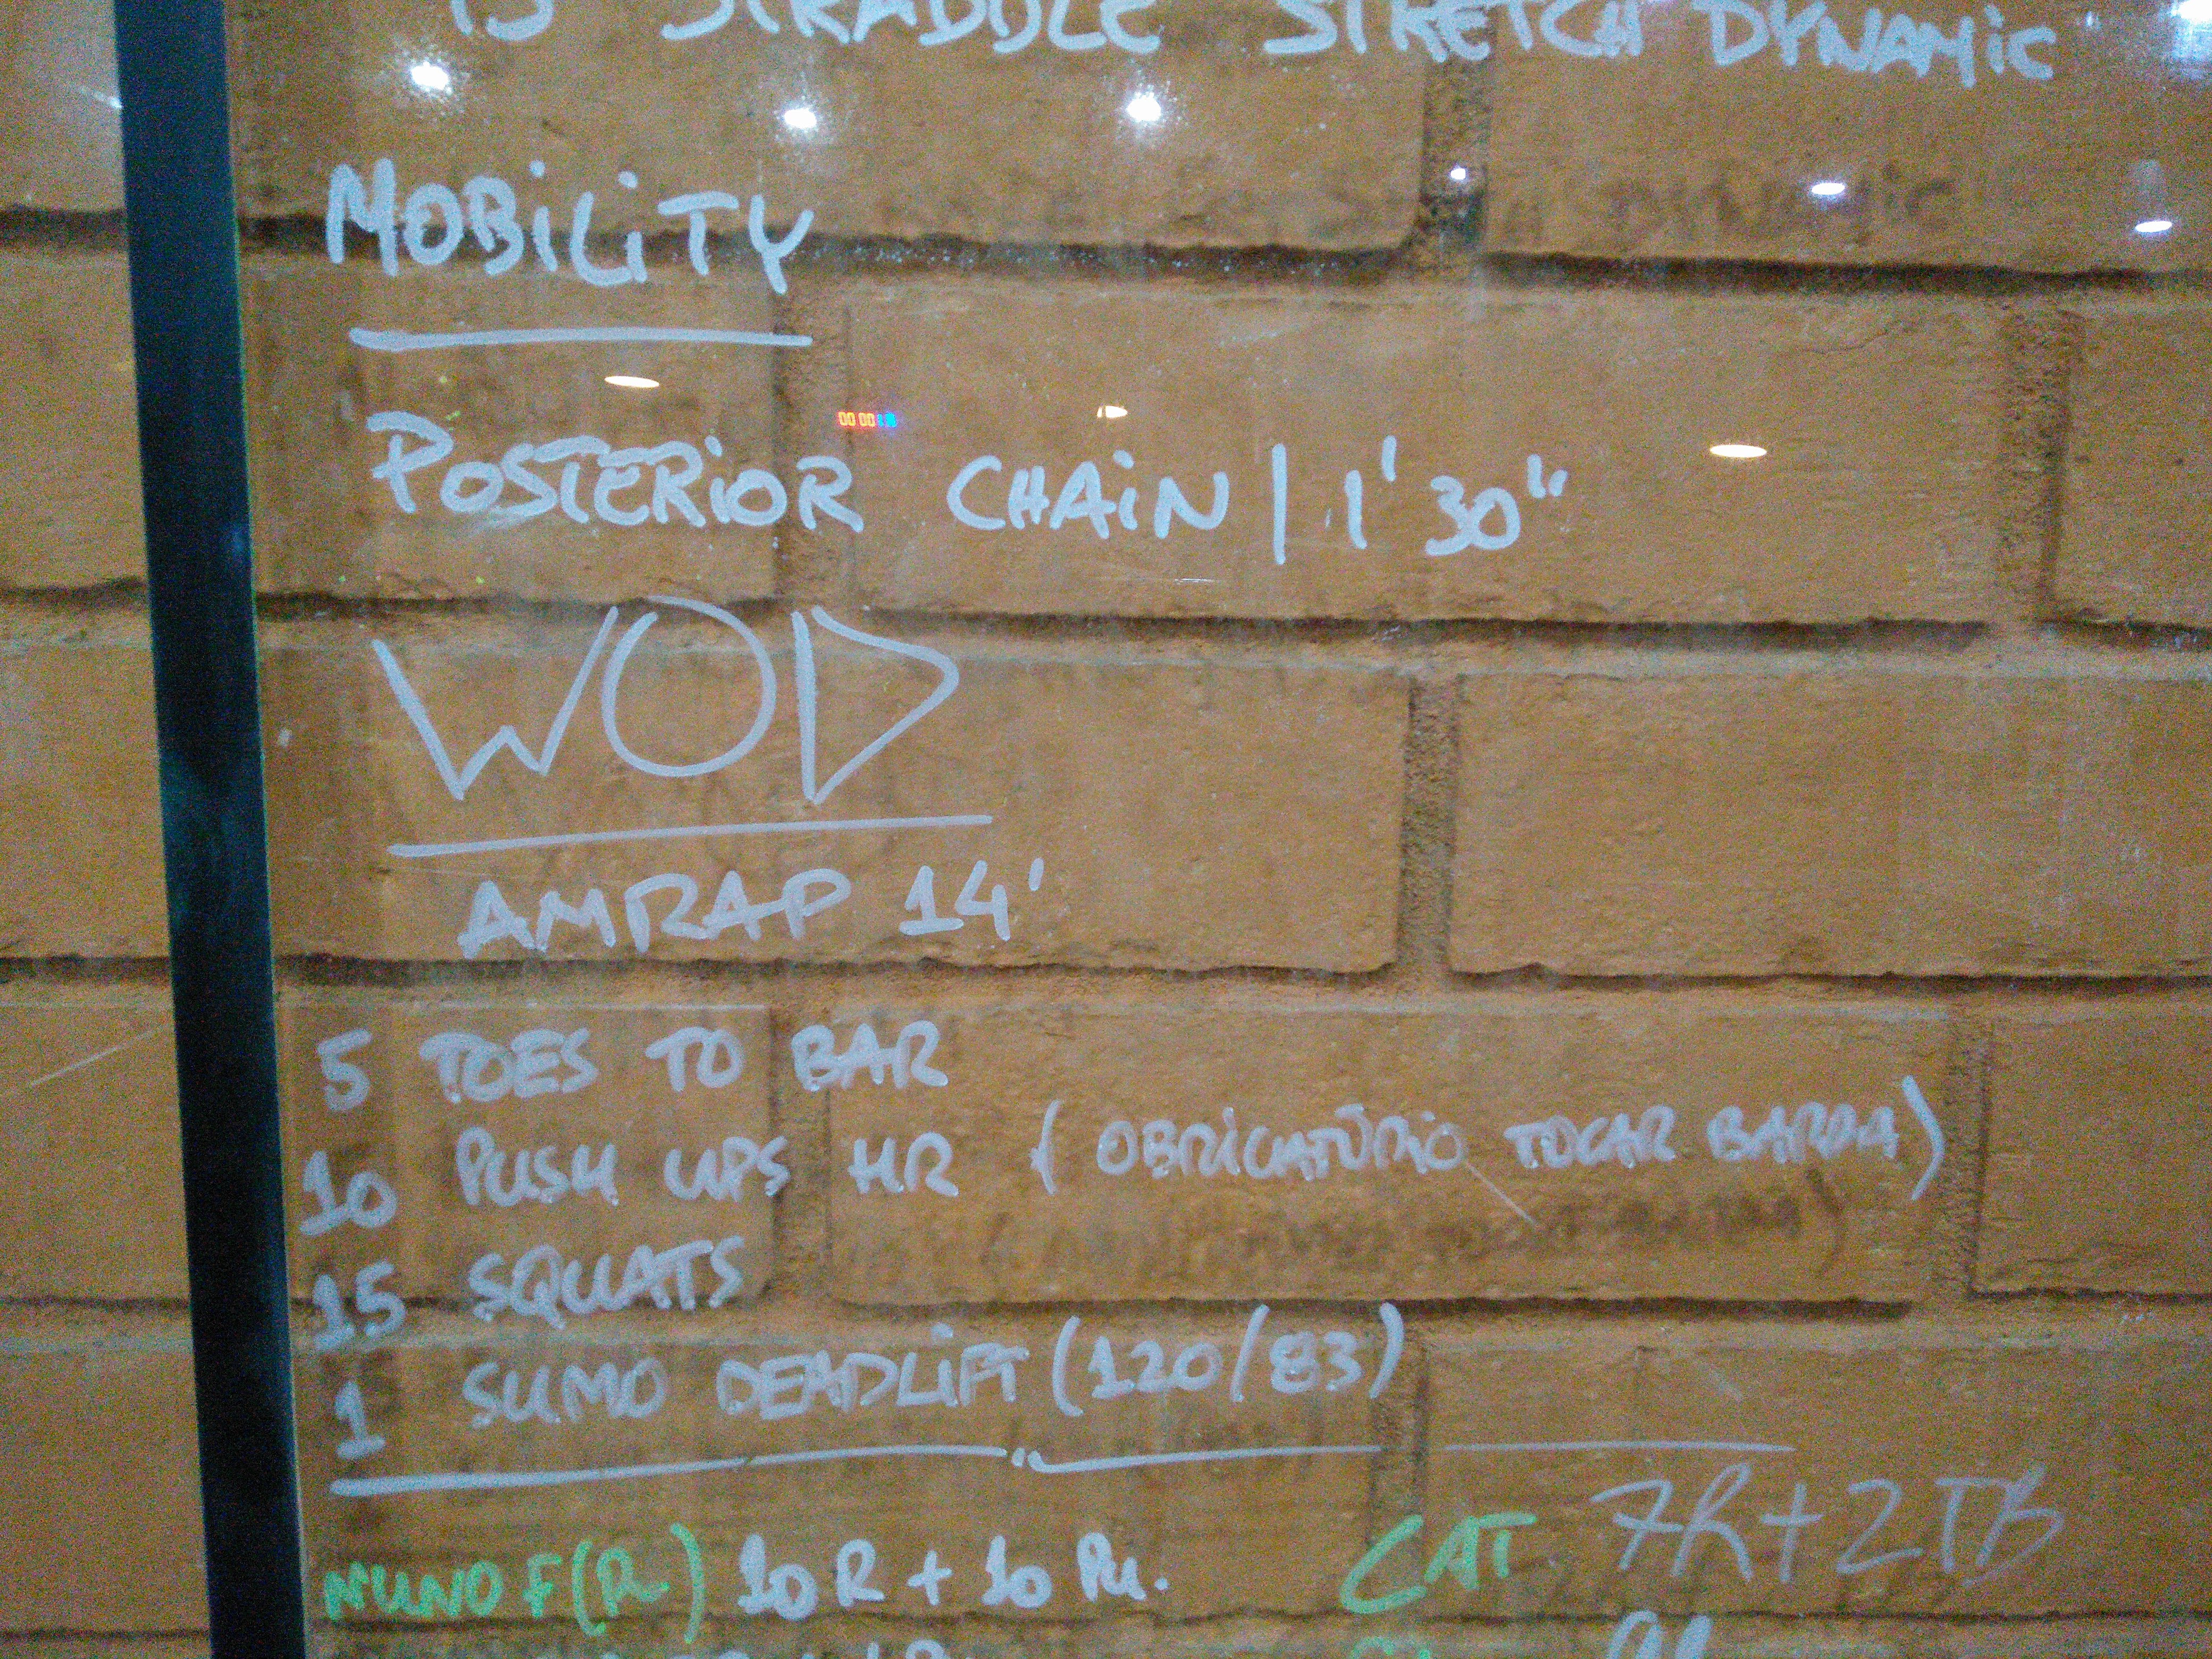 15 STRADDLE STRETCH DYNAMIC
MOBILITY
POSTERIOR CHAIN | 1'30"
WOD
AMRAP 14'
5 TOES TO BAR
10 PUSH UPS HR (OBRIGATÓRIO TOCAR BARRA)
15 SQUATS
1 SUMO DEADLIFT (120/83)
NUNO F(R) 10R + 10 Pu.
CAT 7R+2TB